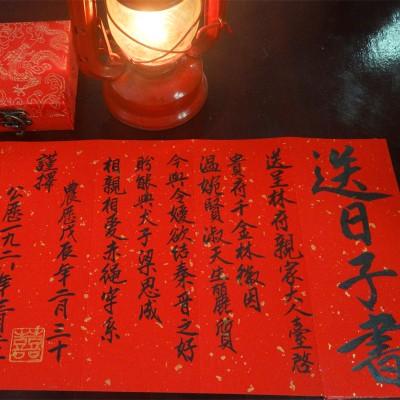 送日子書
送呈林府親家大人臺啓
貴府千金林徽因
温婉賢淑天生麗質
今與令嬡欲结秦晋之好
盼能與犬子梁思成
相親相爱赤绳牢系
謹擇
農歷戊辰年二月三十
公歷一九二八年三月二
囍